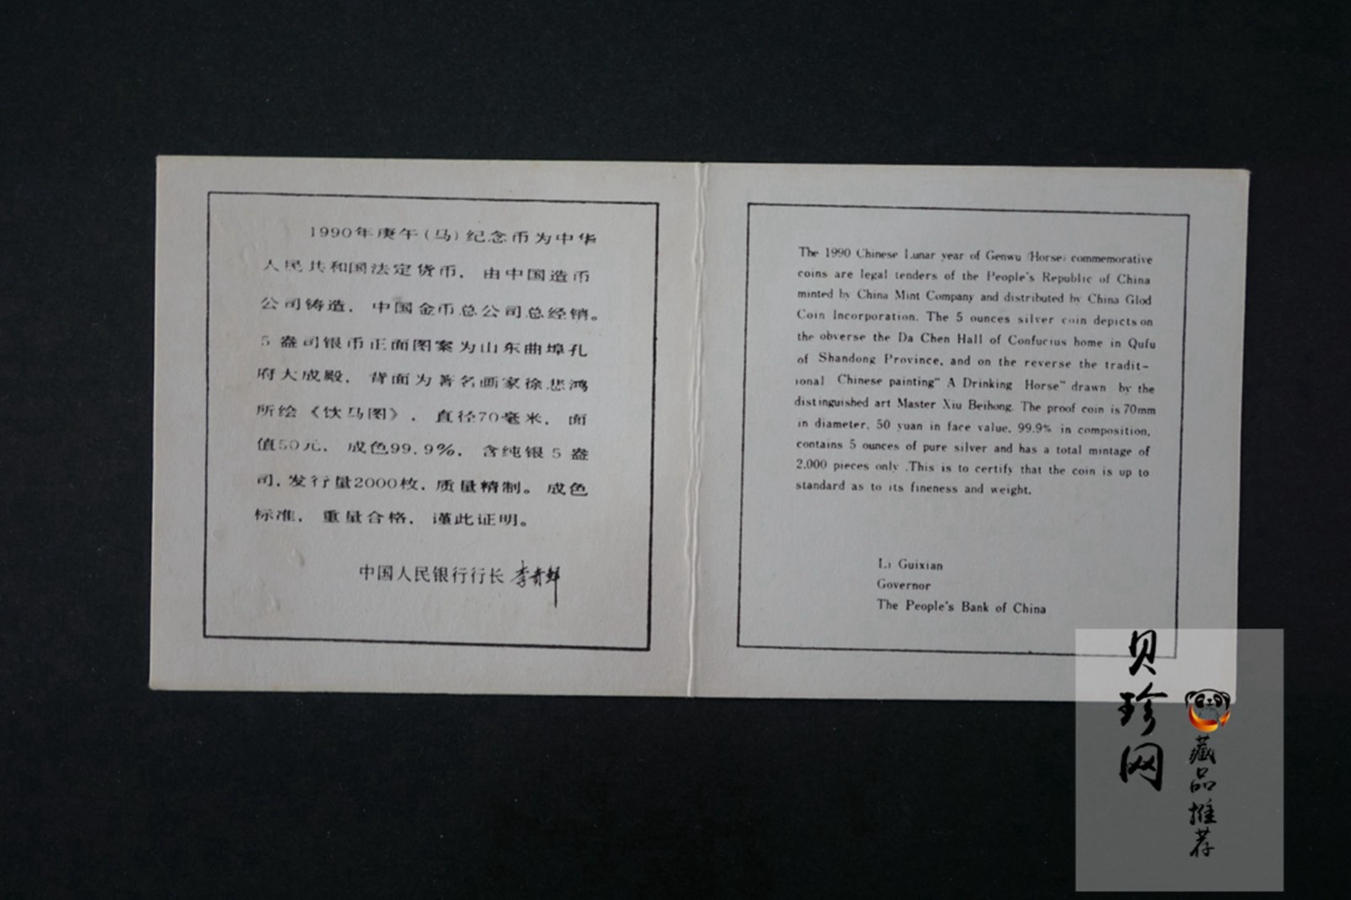 1990年庚午(马)纪念币为中华
人民共和国法定货币，由中国造币
公司铸造，中国金币总公司总经销。
5盎司银币正面图案为山东曲埠孔
府大成殿，背面为著名画家徐悲鸿
所绘《饮马图》，直径70毫米，面
值50元，成色99.9%，含纯银5盎
司，发行量2000枚，质量精制。成色
标准，重量合格，谨此证明。
中国人民银行行长 李贵鲜
The 1990 Chinese Lunar year of Genwu (Horse) commemorative
coins are legal tenders of the People's Republic of China
minted by China Mint Company and distributed by China Glod
Coin Incorporation. The 5 ounces silver coin depicts on
the obverse the Da Chen Hall of Confucius home in Qufu
of Shandong Province, and on the reverse the tradit-
ional Chinese painting" A Drinking Horse" drawn by the
distinguished art Master Xiu Beihong. The proof coin is 70mm
in diameter, 50 yuan in face value, 99.9% in composition,
contains 5 ounces of pure silver and has a total mintage of
2,000 pieces only .This is to certify that the coin is up to
standard as to its fineness and weight.
Li Guixian
Governor
The People's Bank of China
贝珍网
藏品推荐